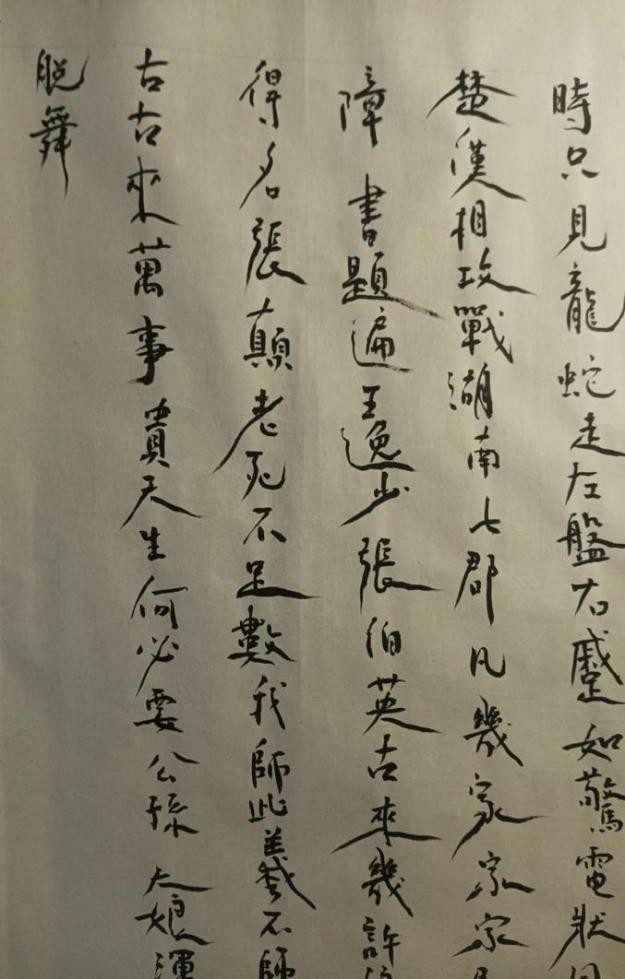 時只見龍蛇走左盤右蹙如驚電狀同
楚漢相攻戰湖南七郡凡幾家家家
障書題遍王逸少張伯英古來幾許
得名張顛老死不足數我師此義不師
古古來萬事貴天生何必要公孫大娘渾
脱舞